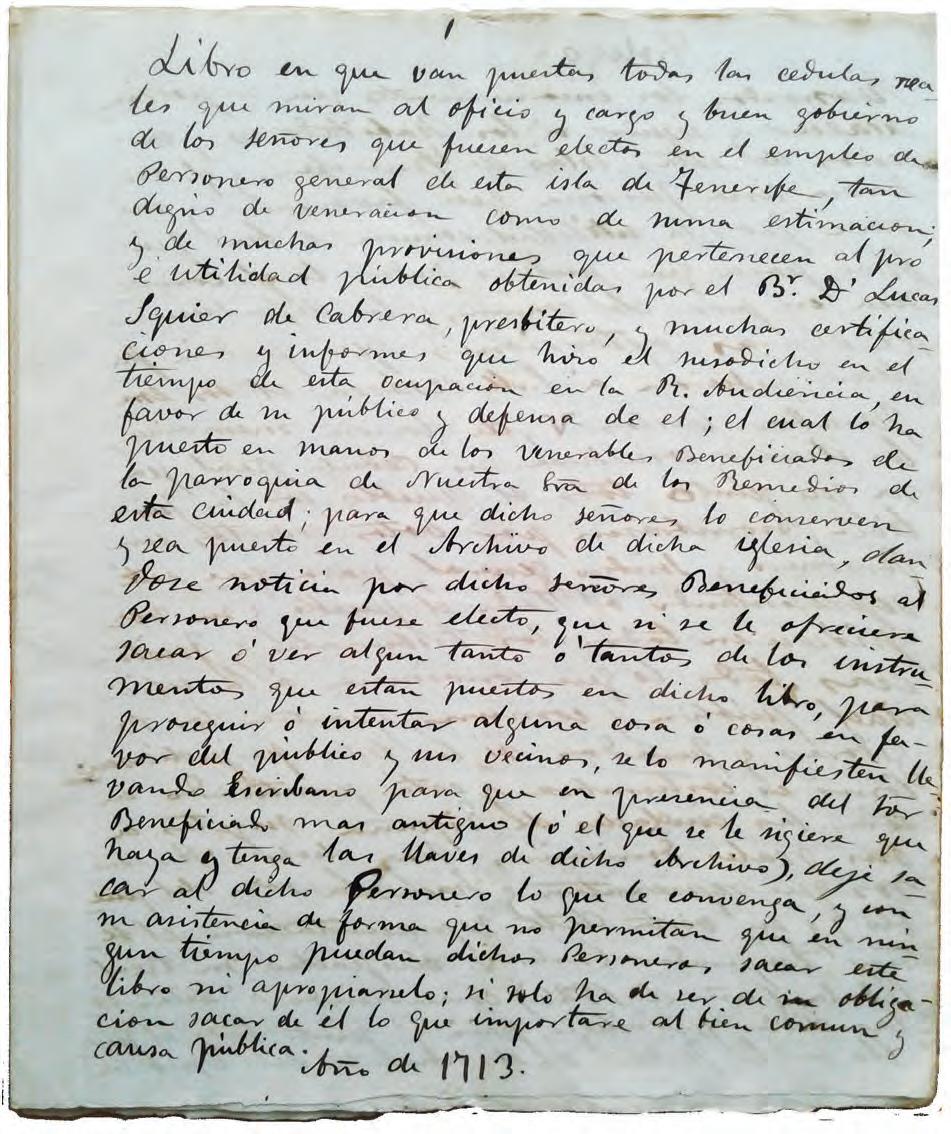 1
Libro en que van puestas todas las cedulas rea-
les que miran al oficio y cargo y buen gobierno
de los señores que fuesen electos en el empleo de
Personero general de esta isla de Tenerife, tan
digno de veneracion como de suma estimacion;
y de muchas provisiones que pertenecen al pro
é utilidad pública obtenidas por el Br. Dn Lucas
Squier de Cabrera, presbítero, y muchas certifica-
ciones y informes que hiso el susodicho en el
tiempo de esta ocupación en la R. Audiencia, en
favor de su público y defensa de el; el cual lo ha
puesto en manos de los venerables Beneficiados de
la parroquia de Nuestra Sra de los Remedios de
esta ciudad; para que dicho señores lo conserven
y sea puesto en el Archivo de dicha iglesia, dan
dose noticia por dicho señores Beneficiados al
Personero que fuese electo, que si se le ofreciera
sacar ó ver algun tanto ó tantos de los instru-
mentos que estan puestos en dicho libro, para
proseguir ó intentar alguna cosa ó cosas en fa-
vor del público y sus vecinos, se lo manifiesten lle
vando Escribano para que en presencia del Sor
Beneficiado mas antiguo (ó el que se le sigiere que
haya y tenga las llaves de dicho Archivo), deje sa
car al dicho Personero lo que le convenga, y con
su asistencia de forma que no permitan que en nin-
gun tiempo puedan dichos Personeros sacar este
libro ni apropiarselo; si solo ha de ser de su obliga-
cion sacar de él lo que importare al bien comun y
causa pública.
Año de 1713.